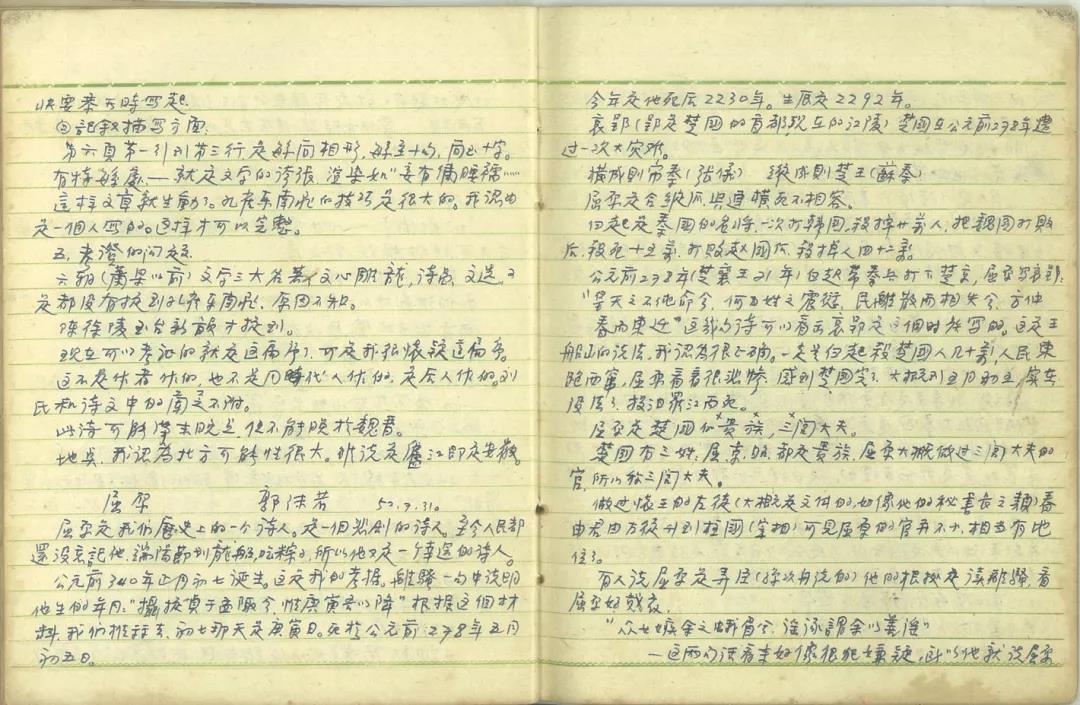 快要奏天時写起.
㊂記叙描写方面.
第六頁第一引到第三行是解向相形,解主十句,向正十字。
有特解處.—就是文字的誇張,渲染如"妾有傭腰襦……
這样文章就生動了。孔雀东南飛的技巧是很大的。我認为
是一個人写的。這样才可以完整。
五.考澄的问題.
六朝(蕭梁以前)文学三大名著,文心雕龍,诗品 文选 可
是都没有提到孔雀东南飛,原因不知。
陳徐陵玉台新韻才提到。
现在可以考证的就是這篇序了,可是我很懷疑這篇序。
这不是作者作的,也不是同時代人作的,是后人作的。刘
氏和诗文中的蘭芝不附。
此诗可能漢末脱...但不能晚於魏晋。
地点,我認為北方可能性很大。雖说是廬江即是安徽。
屈原 郭沫若 52.7.31.
屈原是我们歷史上的一个诗人。是一個悲剧的诗人。至今人民都
還没忘記他,端陽節划龍船,吃粽子,所以他又是一个幸运的诗人。
公元前340年正月初七诞生。这是我的考据。離騷一句中说明
他生的年月:"攝提貞于孟陬兮,惟庚寅吾以降"根据这個材
料,我们推算去,初七那天是庚寅日。死於公元前278年五月
初五日。
今年是他死后2230年。生辰是2292年。
哀郢(郢是楚國的首都现在的江陵)楚國在公元前278年遭
过一次大灾难。
横成則帝秦(张儀) 縱成則楚王(蘇秦)
屈原是合縱派與連横派不相容。
白起是秦國的名将,一次打韩国,殺掉廿萬人,把魏国打敗
后,殺死十五萬.打敗赵國后,殺掉人四十二萬。
公元前278年(楚襄王21年)白起帶秦兵打下楚京,屈原写哀郢:
"皇天之不纯命兮,何百姓之震愆,民離散而相失兮,方仲
春而東迁"这幾句诗可以看出哀郢是这個时候写的。这是王
船山的说法,我認為很正确。一定是白起殺楚國人几十萬,人民東
跑西竄,屈原看着很悲惨,感到楚国完了,大概到五月初五,實在
没法了,投汨羅江而死。
屈原是楚國的貴族,三閭大夫。
楚國有三姓,屈.景,昭,都是貴族,屈原大概做过三閭大夫的
官,所以称三閭大夫。
做过懷王的左徒(大概是文件的,如像他的秘書長之類)春
申君由左徒升到柱國(宰相)可见屈原的官并不小,相当有地
位了。
有人说屈原是弄臣(孫次舟说的)他的根據是读離騷,看
屈原好裝衣.
"众女嫉余之蛾眉兮,谣诼謂余以善淫"
—这两句话看来好像很犯嫌疑,所以他就说屈原